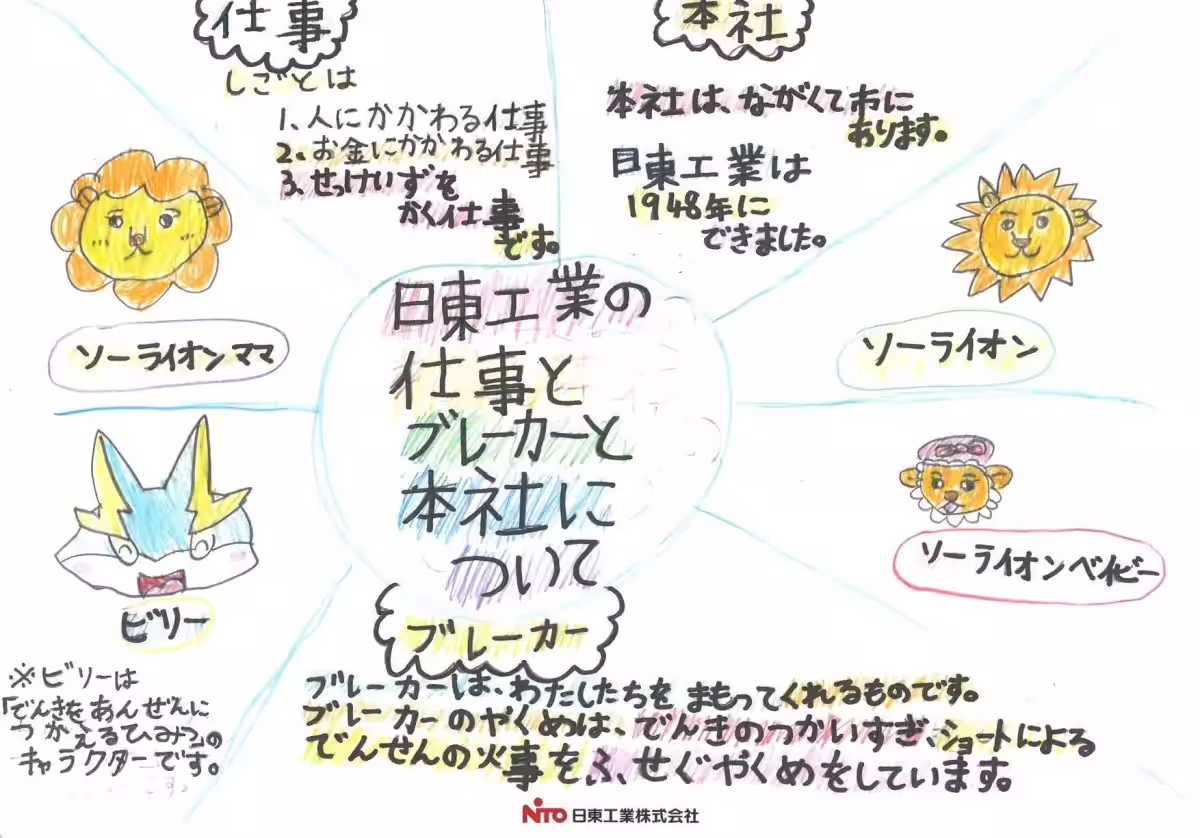 仕事
しごとは
1、人にかかわる仕事
2、お金にかかわる仕事
3、せっけいずを
かく仕事
です。
本社
本社は、ながくて市に
あります。
日東工業は
1948年に
できました。
ソーライオンママ
ソーライオン
日東工業の
仕事と
ブレーカーと
本社に
ついて
ビリー
ソーライオンベイビー
※ビリーは
「でんきをあんぜんに
つかえるひみつ」の
キャラクターです。
ブレーカー
ブレーカーは、わたしたちをまもってくれるものです。
ブレーカーのやくめは、でんきのつかいすぎ、ショートによる
でんせんの火事をふ、せぐやくめをしています。
NITO 日東工業株式会社